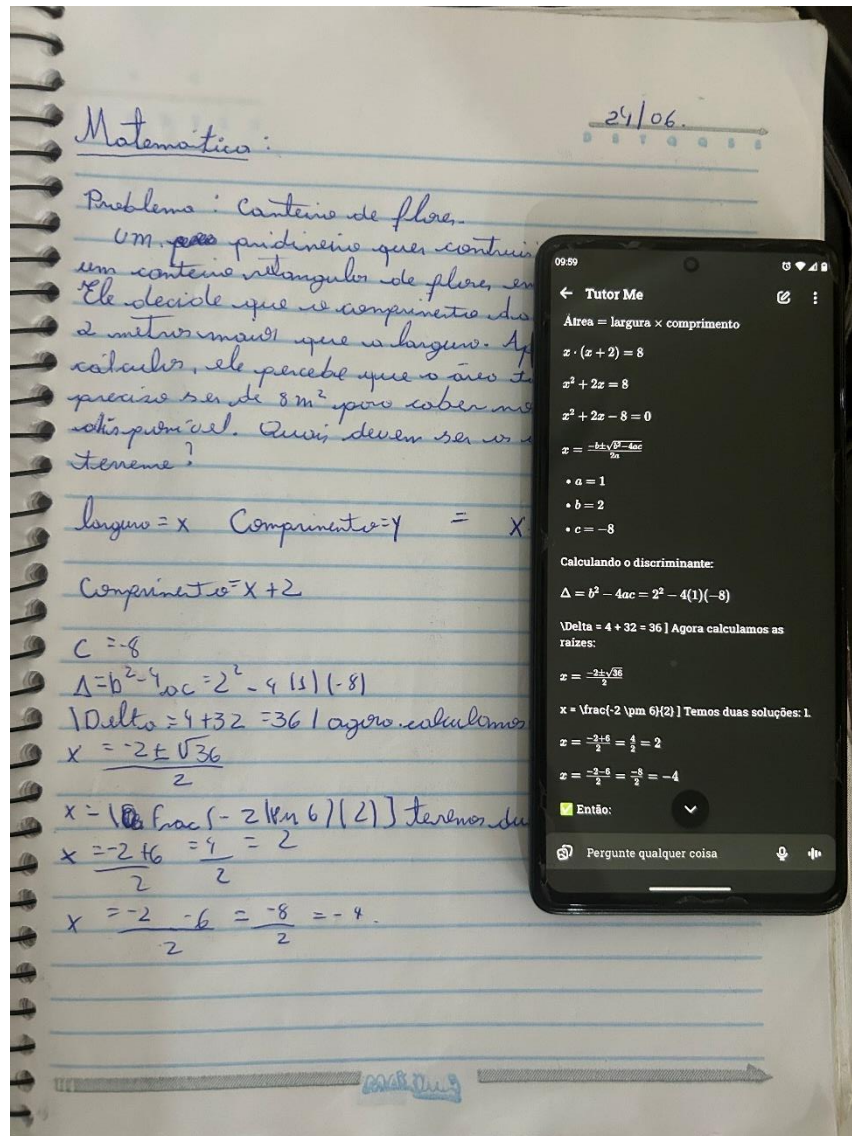 24/06.
D S T Q Q S S
Matemática:
Problema: Canteiro de flores.
Um jardineiro quer contruir
um canteiro retangular de flores em
Ele decide que o comprimento do
2 metros maior que a largura. Ap
cálculos, ele percebe que a área to
precisa ser de 8 m² para caber no
disponível. Quais devem ser os
terreme?
largura = x Comprimento = y = x
Comprimento = x + 2
C = -8
Δ = b² - 4ac = 2² - 4 (1) (-8)
\Delta = 4 + 32 = 36 ] agora calculamos
x = -2 ± √36 / 2
x = \frac{-2 \pm 6}{2} ] temos du
x = -2+6 / 2 = 4/2 = 2
x = -2 -6 / 2 = -8/2 = -4.
09:59
← Tutor Me
Área = largura × comprimento
x · (x + 2) = 8
x² + 2x = 8
x² + 2x − 8 = 0
x = −b±√b²−4ac / 2a
• a = 1
• b = 2
• c = −8
Calculando o discriminante:
Δ = b² − 4ac = 2² − 4(1)(−8)
\Delta = 4 + 32 = 36 ] Agora calculamos as
raízes:
x = −2±√36 / 2
x = \frac{-2 \pm 6}{2} ] Temos duas soluções: 1.
x = −2+6 / 2 = 4/2 = 2
x = −2−6 / 2 = −8/2 = −4
✅ Então:
Pergunte qualquer coisa